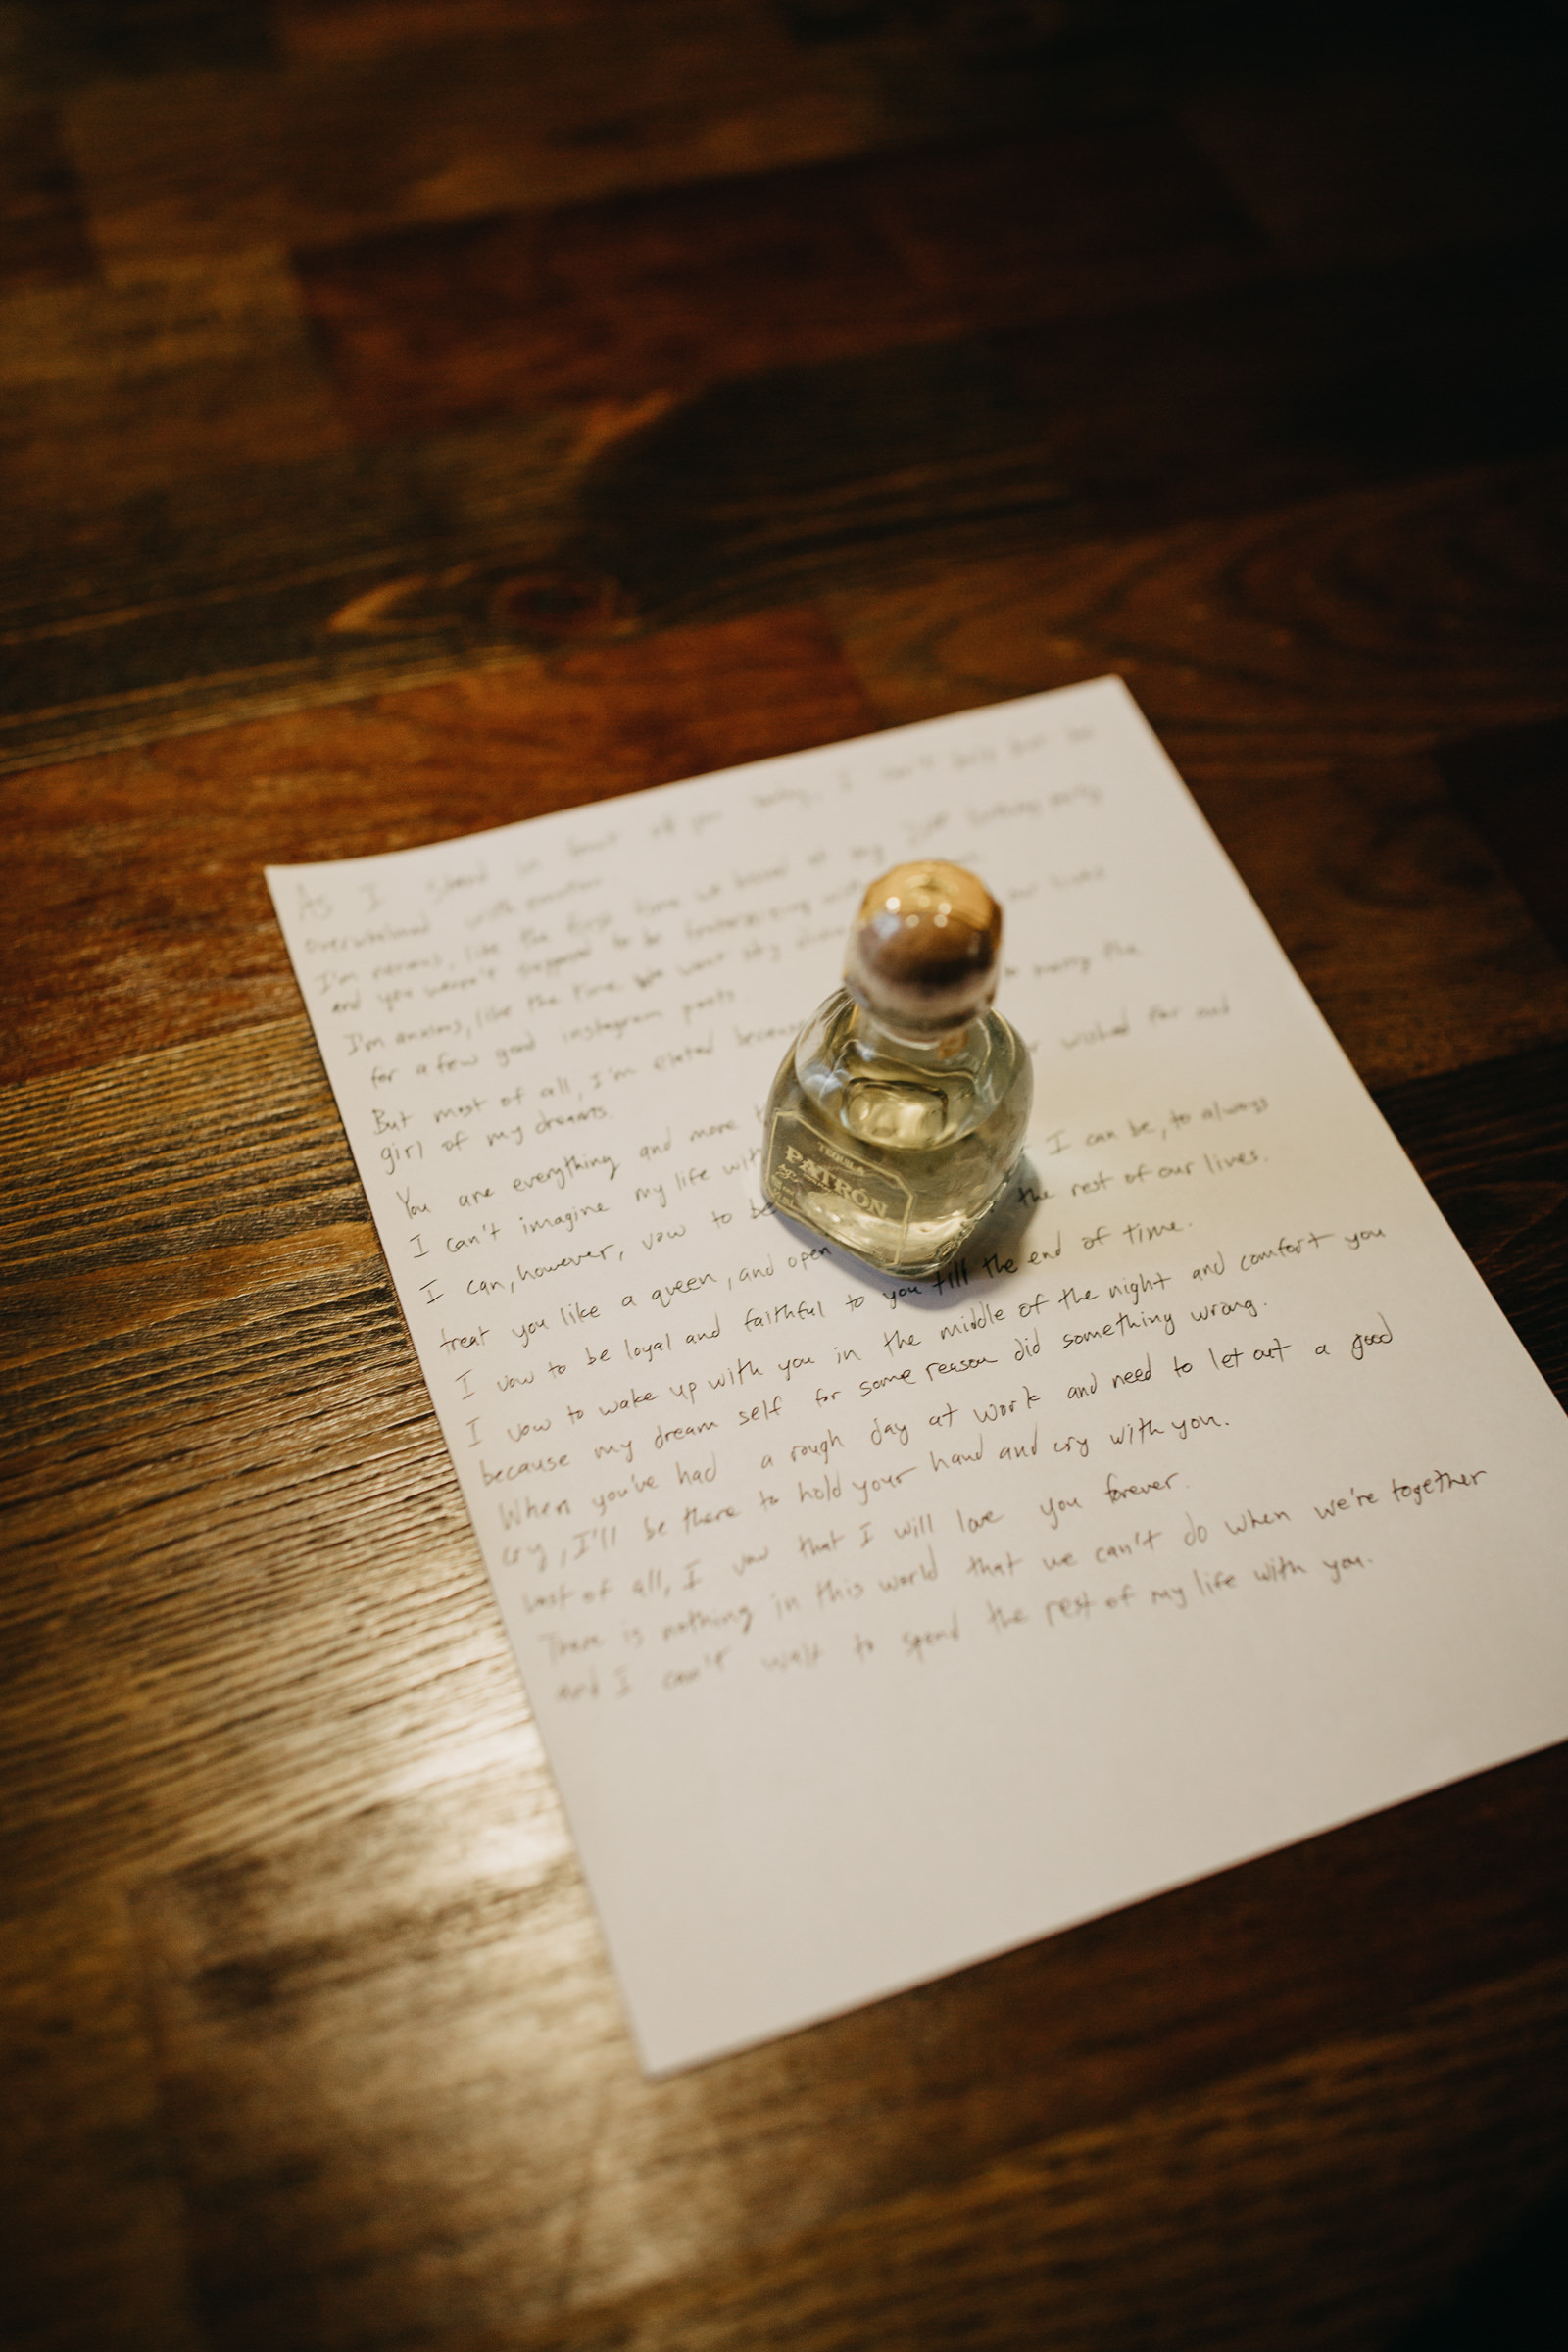 As I stand in front of you today, I can't help but be
overwhelmed with emotion
I'm nervous, like the first time we kissed at my birthday party
and you weren't supposed to be fraternizing with
I'm anxious, like the time we went sky our lives
for a few good instagram posts
But most of all, I'm elated because marry the
girl of my dreams.
You are everything and more wished for and
I can't imagine my life with
I can, however, vow to be I can be, to always
treat you like a queen, and open the rest of our lives.
I vow to be loyal and faithful to you till the end of time.
I vow to wake up with you in the middle of the night and comfort you
because my dream self for some reason did something wrong.
When you've had a rough day at work and need to let out a good
cry, I'll be there to hold your hand and cry with you.
Most of all, I vow that I will love you forever.
There is nothing in this world that we can't do when we're together
and I can't wait to spend the rest of my life with you.
TEQUILA
PATRÓN